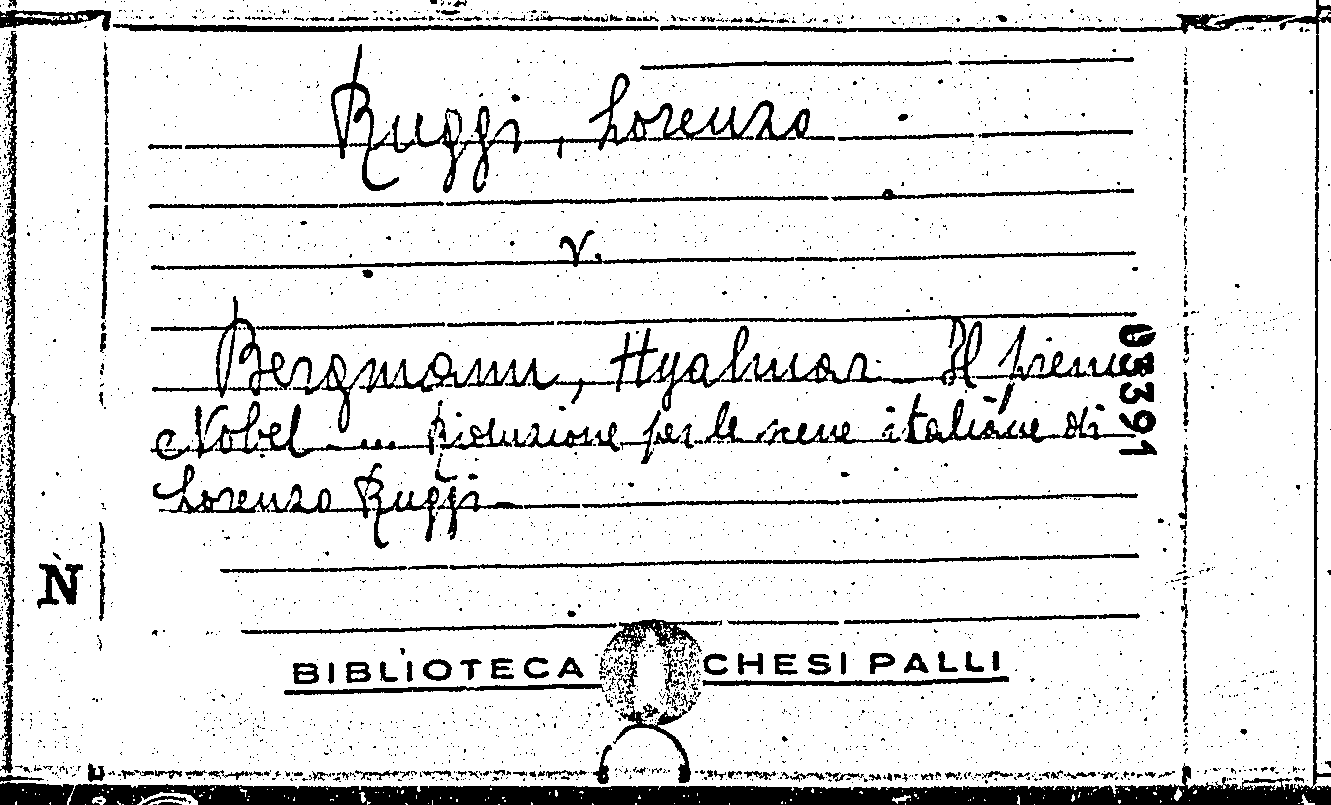 Ruggi, Lorenzo
v.
Bergmann, Hyalmar. Il premio
Nobel ... Riduzione per le scene italiane di
Lorenzo Ruggi
033391
N
BIBLIOTECA CHESI PALLI